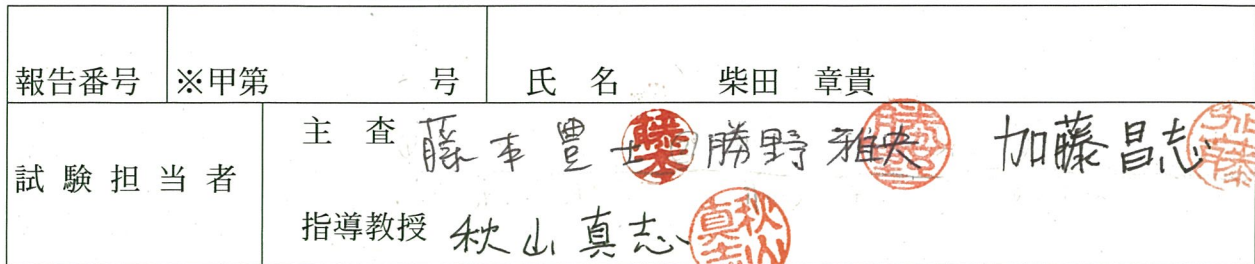 報告番号 ※甲第 号 氏 名 柴田 章貴
試験担当者 主 査 藤本豊士 勝野雅央 加藤昌志
指導教授 秋山真志